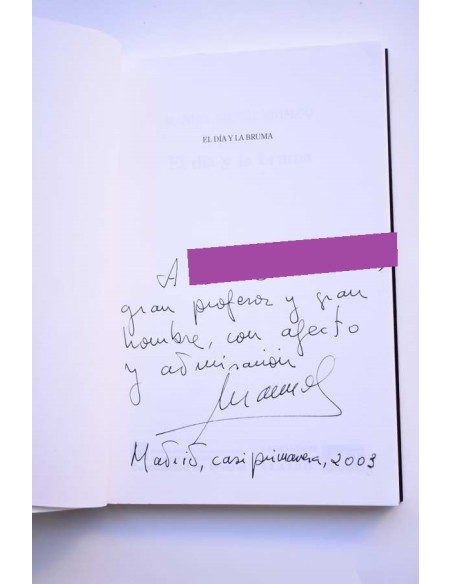 EL DÍA Y LA BRUMA
A
gran profesor y gran
hombre, con afecto
y admiración
Manuel
Madrid, casi primavera, 2003